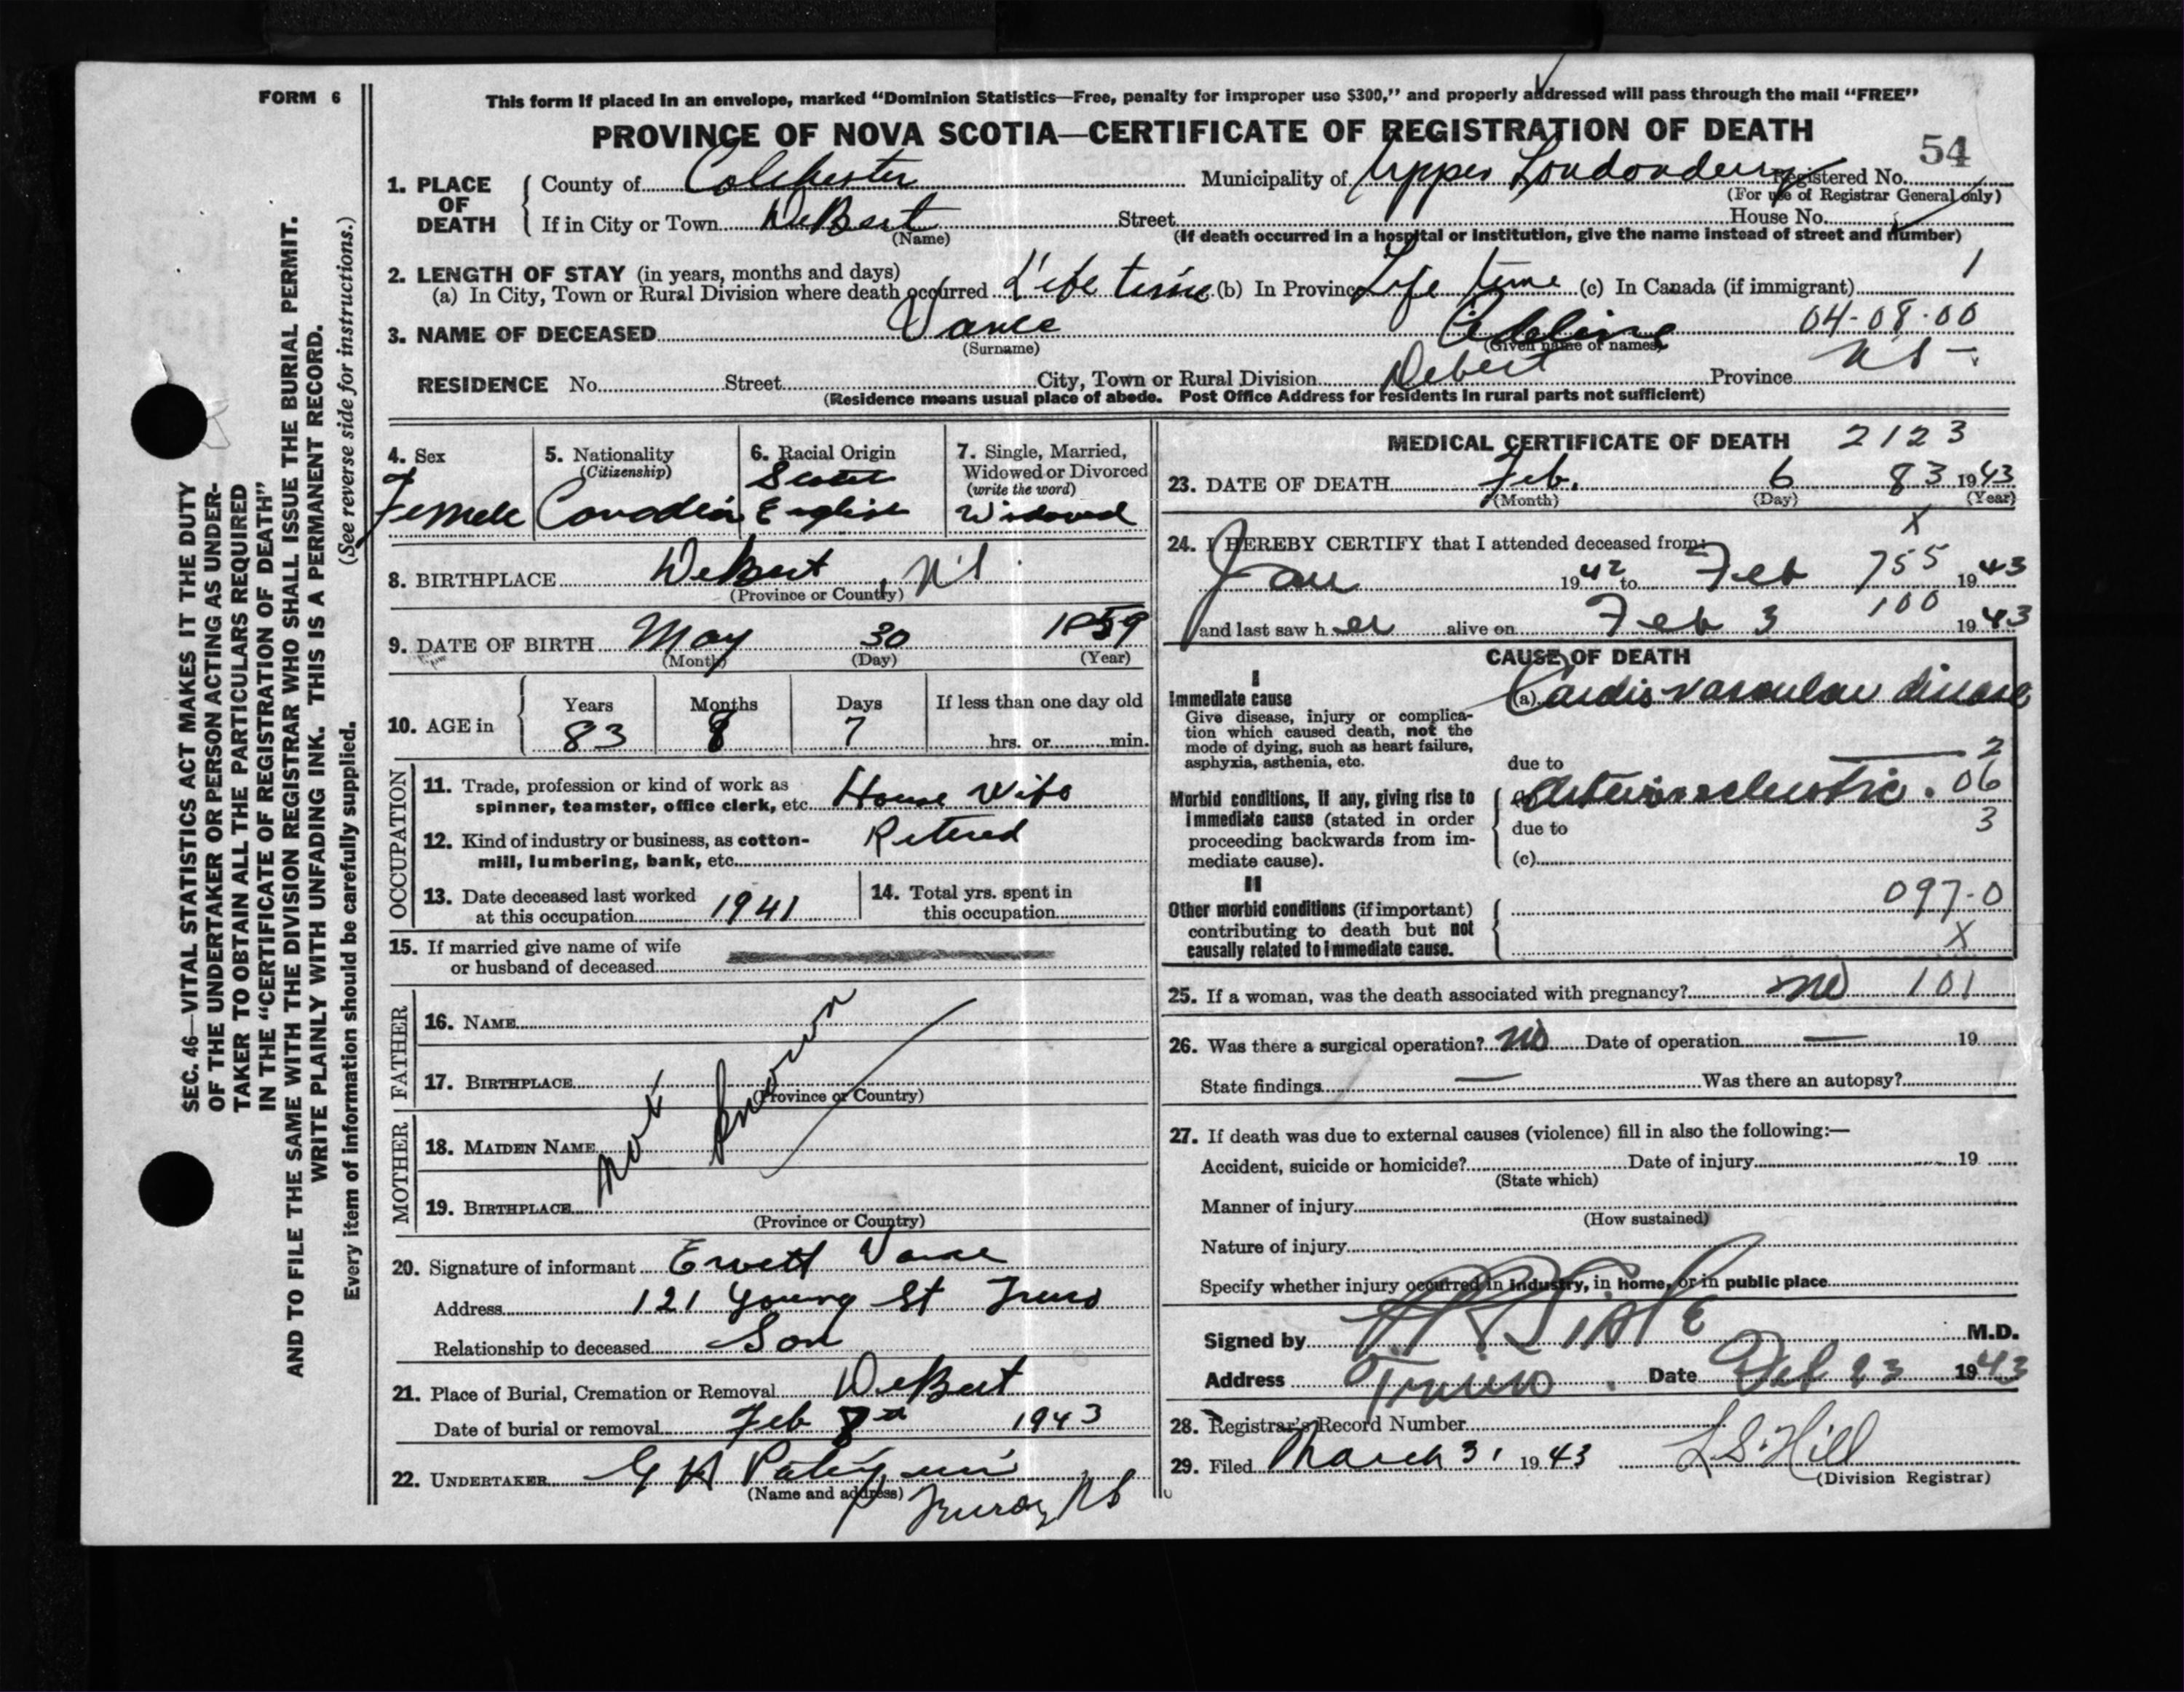 FORM 6
This form if placed in an envelope, marked "Dominion Statistics—Free, penalty for improper use $300," and properly addressed will pass through the mail "FREE"
PROVINCE OF NOVA SCOTIA—CERTIFICATE OF REGISTRATION OF DEATH
54
1. PLACE OF DEATH
County of Colchester Municipality of Upper Londonderry Registered No.
(For use of Registrar General only)
If in City or Town DeBert Street House No.
(Name) (If death occurred in a hospital or institution, give the name instead of street and number)
2. LENGTH OF STAY (in years, months and days)
(a) In City, Town or Rural Division where death occurred Life time (b) In Province Life time (c) In Canada (if immigrant) 1
3. NAME OF DECEASED Vance 04-08-00
(Surname) (Given name or names)
RESIDENCE No. Street City, Town or Rural Division Debert Province N S
(Residence means usual place of abode. Post Office Address for residents in rural parts not sufficient)
4. Sex
Female
5. Nationality
(Citizenship)
Canadian
6. Racial Origin
Scotch
English
7. Single, Married,
Widowed or Divorced
(write the word)
Widowed
8. BIRTHPLACE DeBert, N S
(Province or Country)
9. DATE OF BIRTH May 30 1859
(Month) (Day) (Year)
10. AGE in
Years Months Days If less than one day old
83 8 7 hrs. or min.
OCCUPATION
11. Trade, profession or kind of work as
spinner, teamster, office clerk, etc. House Wife
12. Kind of industry or business, as cotton-
mill, lumbering, bank, etc. Retired
13. Date deceased last worked
at this occupation 1941
14. Total yrs. spent in
this occupation
15. If married give name of wife
or husband of deceased
FATHER
16. NAME
17. BIRTHPLACE
(Province or Country)
Not Known
MOTHER
18. MAIDEN NAME
19. BIRTHPLACE
(Province or Country)
20. Signature of informant Vance
Address 121 Young St Truro
Relationship to deceased Son
21. Place of Burial, Cremation or Removal DeBert
Date of burial or removal Feb 8th 1943
22. UNDERTAKER G H
(Name and address) Truro, NS
MEDICAL CERTIFICATE OF DEATH 2123
23. DATE OF DEATH Feb. 6 83 1943
(Month) (Day) (Year)
X
24. I HEREBY CERTIFY that I attended deceased from:
Jan 1942 to Feb 755 1943
100
and last saw her alive on Feb 3 1943
CAUSE OF DEATH
I
Immediate cause
Give disease, injury or complica-
tion which caused death, not the
mode of dying, such as heart failure,
asphyxia, asthenia, etc.
(a) Cardio vascular disease
due to 2
Morbid conditions, if any, giving rise to
immediate cause (stated in order
proceeding backwards from im-
mediate cause).
06
due to 3
(c)
II
Other morbid conditions (if important)
contributing to death but not
causally related to immediate cause.
097-0
X
25. If a woman, was the death associated with pregnancy? no 101
26. Was there a surgical operation? no Date of operation — 19
State findings — Was there an autopsy?
27. If death was due to external causes (violence) fill in also the following:—
Accident, suicide or homicide? Date of injury 19
(State which)
Manner of injury
(How sustained)
Nature of injury
Specify whether injury occurred in industry, in home, or in public place
Signed by M.D.
Address Truro. Date Feb 23 1943
28. Registrar's Record Number
29. Filed March 31 1943 L S. Hill
(Division Registrar)
SEC. 46—VITAL STATISTICS ACT MAKES IT THE DUTY
OF THE UNDERTAKER OR PERSON ACTING AS UNDER-
TAKER TO OBTAIN ALL THE PARTICULARS REQUIRED
IN THE "CERTIFICATE OF REGISTRATION OF DEATH"
AND TO FILE THE SAME WITH THE DIVISION REGISTRAR WHO SHALL ISSUE THE BURIAL PERMIT.
WRITE PLAINLY WITH UNFADING INK. THIS IS A PERMANENT RECORD.
Every item of information should be carefully supplied. (See reverse side for instructions.)